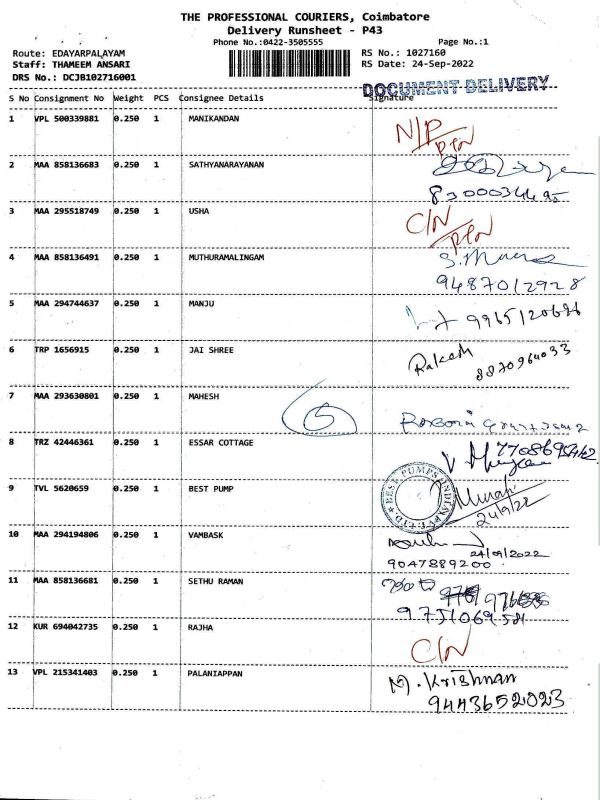 THE PROFESSIONAL COURIERS, Coimbatore
Delivery Runsheet - P43
Phone No.:0422-3505555 Page No.:1
Route: EDAYARPALAYAM RS No.: 1027160
Staff: THAMEEM ANSARI RS Date: 24-Sep-2022
DRS No.: DCJB102716001
DOCUMENT DELIVERY
S No Consignment No Weight PCS Consignee Details Signature
1 VPL 500339881 0.250 1 MANIKANDAN N/P
2 MAA 858136683 0.250 1 SATHYANARAYANAN
3 MAA 295518749 0.250 1 USHA C/N
4 MAA 858136491 0.250 1 MUTHURAMALINGAM
9487012928
5 MAA 294744637 0.250 1 MANJU
6 TRP 1656915 0.250 1 JAI SHREE Rakesh 8870964033
7 MAA 293630801 0.250 1 MAHESH
8 TRZ 42446361 0.250 1 ESSAR COTTAGE
9 TVL 5620659 0.250 1 BEST PUMP BEST PUMPS INDIA PVT. LTD. Murali
24/9/22
10 MAA 294194806 0.250 1 VAMBASK
24/09/2022
9047889200
11 MAA 858136681 0.250 1 SETHU RAMAN
9751069581
12 KUR 694042735 0.250 1 RAJHA C/N
13 VPL 215341403 0.250 1 PALANIAPPAN M. Krishnan
9443652023